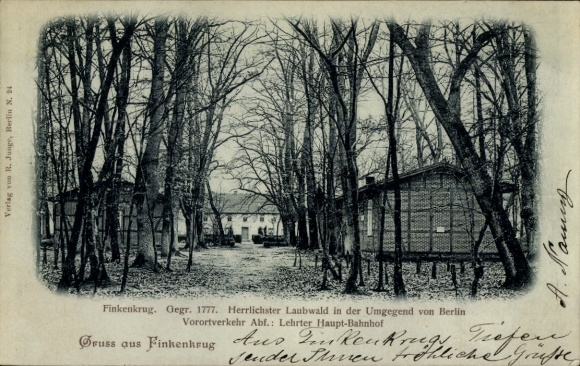 Verlag von R. Junge, Berlin N. 24
Finkenkrug. Gegr. 1777. Herrlichster Laubwald in der Umgegend von Berlin
Vorortverkehr Abf.: Lehrter Haupt-Bahnhof
Gruss aus Finkenkrug
Aus Finkenkrugs Tiefen
sendet Ihnen fröhliche Grüße
A.